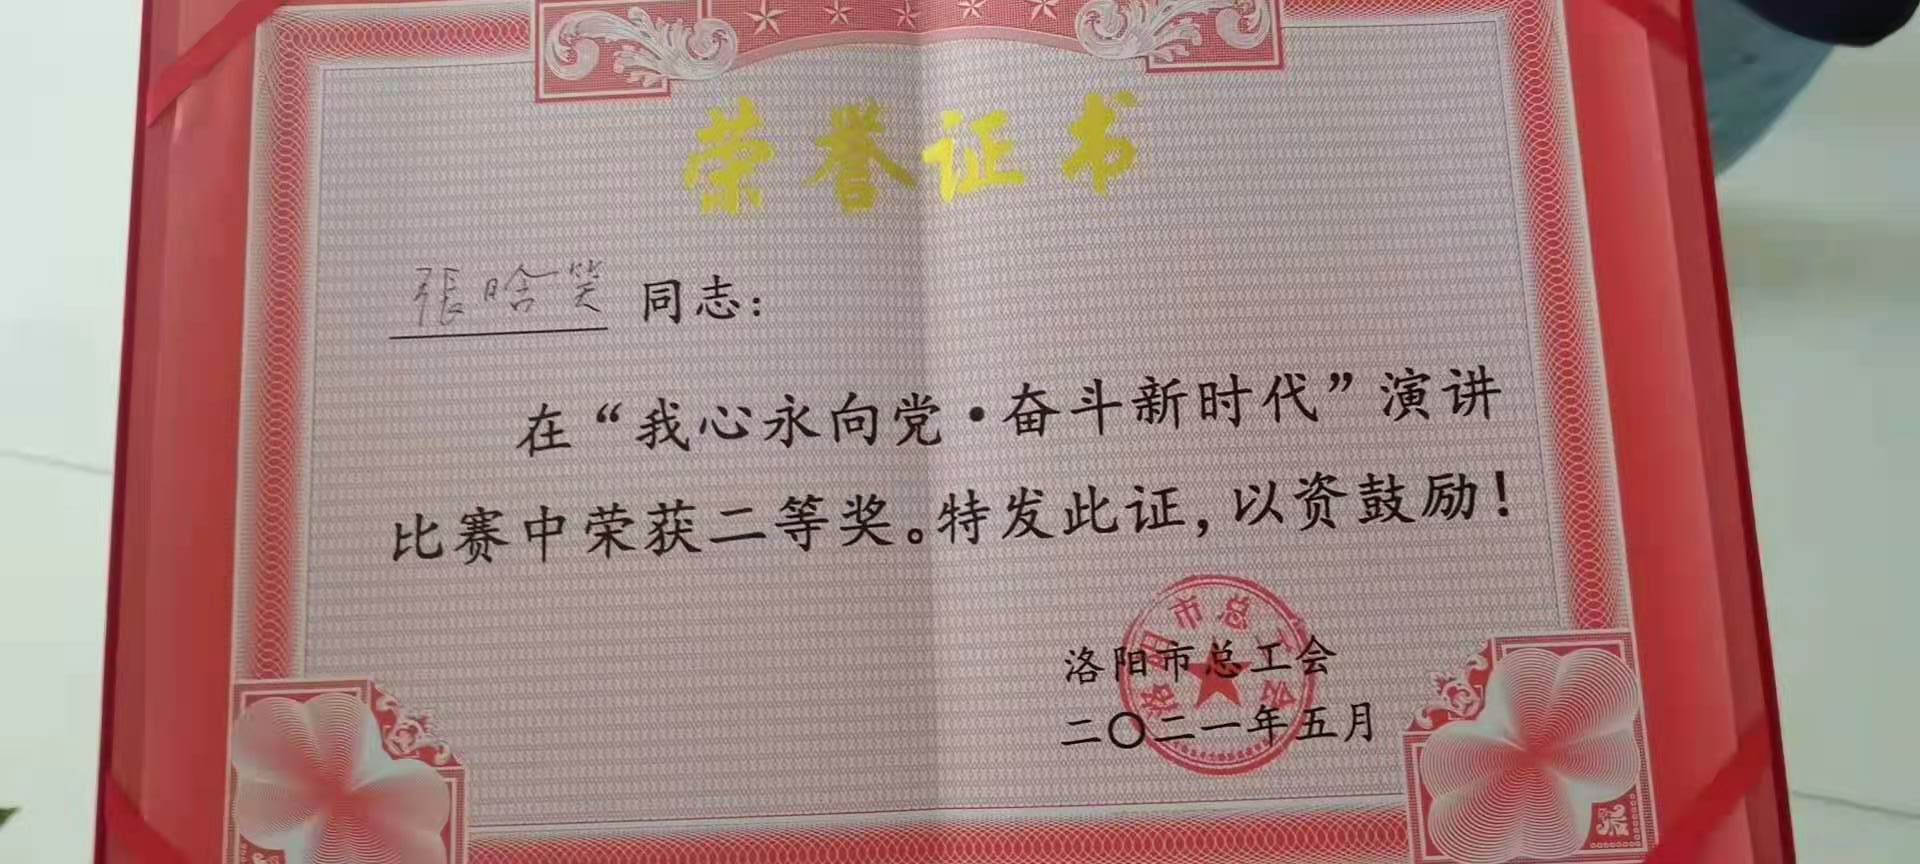 荣誉证书
張晗笑 同志：
在“我心永向党·奋斗新时代”演讲
比赛中荣获二等奖。特发此证，以资鼓励！
洛阳市总工会
二〇二一年五月
洛阳市总工会